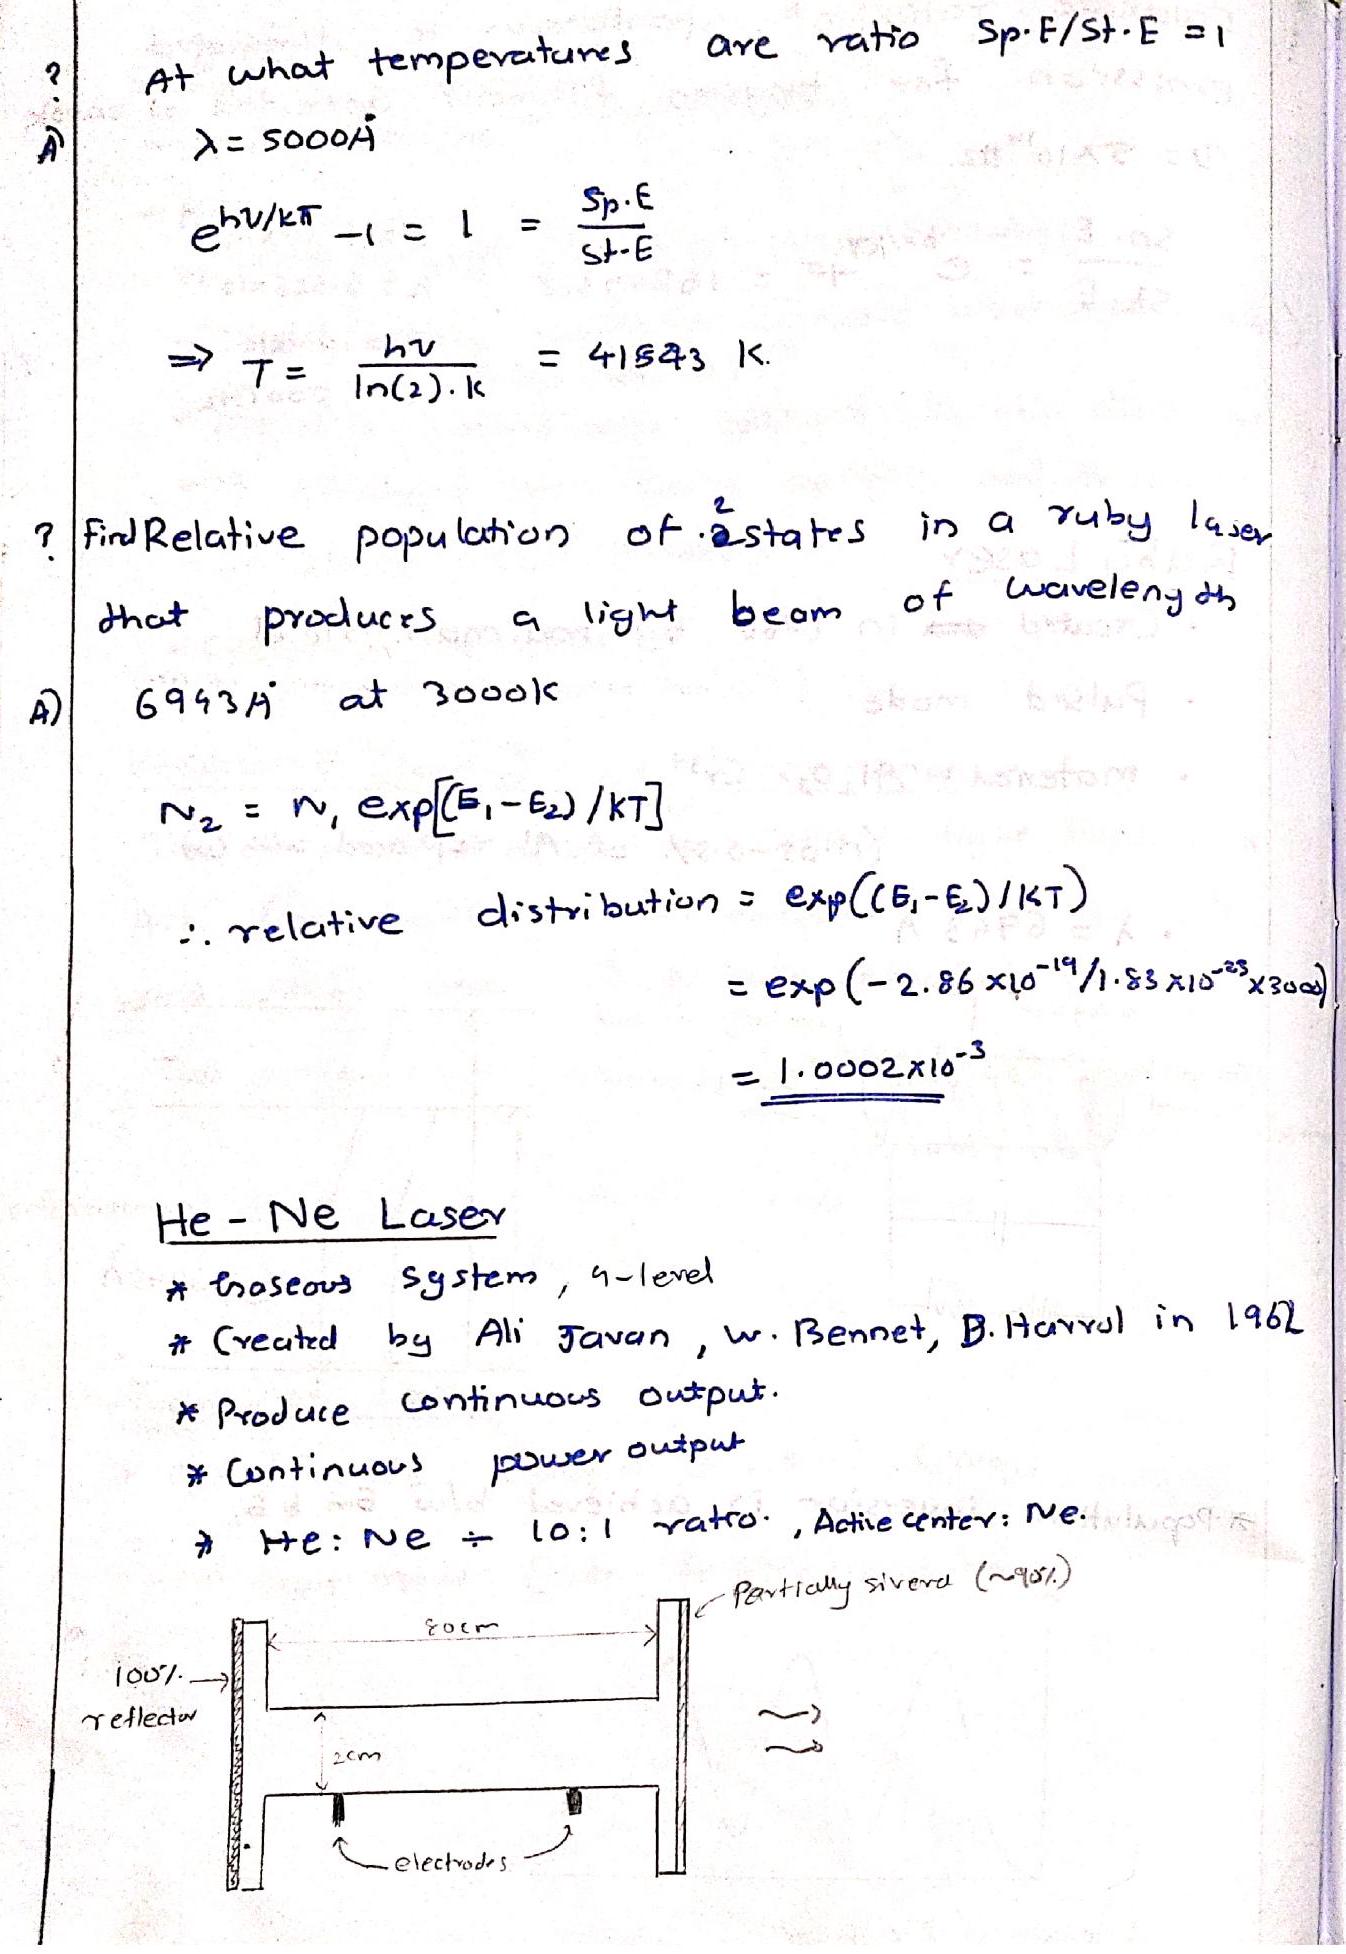 ? At what temperatures are ratio Sp.E/St.E = 1
A) λ = 5000Å
e^hν/kT − 1 = 1 = Sp.E / St.E
⇒ T = hν / ln(2).k = 41543 K.
? Find Relative population of 2 states in a ruby laser
that produces a light beam of wavelength
A) 6943Å at 3000K
N₂ = N₁ exp[(E₁−E₂)/KT]
∴ relative distribution = exp((E₁−E₂)/KT)
= exp(−2.86 x10⁻¹⁹/1.83 x10⁻²³x3000)
= 1.0002x10⁻³
He - Ne Laser
* Gaseous system, 4-level
* Created by Ali Javan, W. Bennet, D. Harrol in 1962
* Produce continuous output.
* Continuous power output
* He : Ne ÷ 10:1 ratio. , Active center: Ne.
Partially siverd (~90%)
80cm
100% reflector
2cm
electrodes